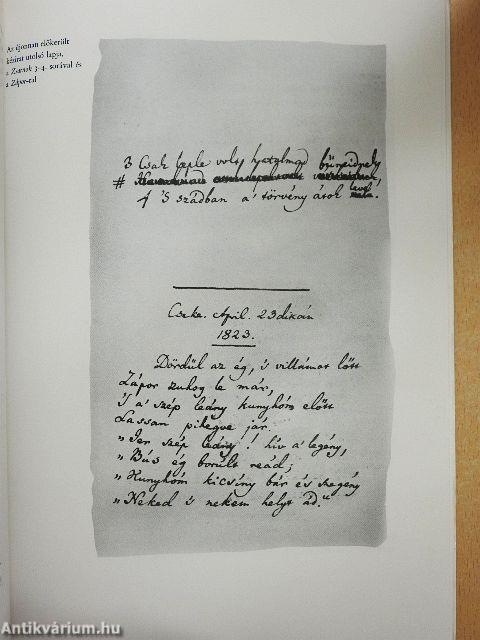 Az újonnan előkerült
kézirat utolsó lapja,
a Zsarnok 3-4. sorával és
a Zápor-ral
3 Csak leple voly hatalmad bűneidnek,
#
4 'S szádban a' törvény átok
Cseke. April. 23dikán
1823.
Dördül az ég, 's villámot lött
Zápor zuhog le már,
'S a' szép leány kunyhóm előtt
Lassan pihegve jár.
„Jer szép leány! hív a legény,
„Bús ég borúlt reád;
„Kunyhóm kicsíny bár és szegény
„Neked 's nekem helyt ád."
Antikvárium.hu